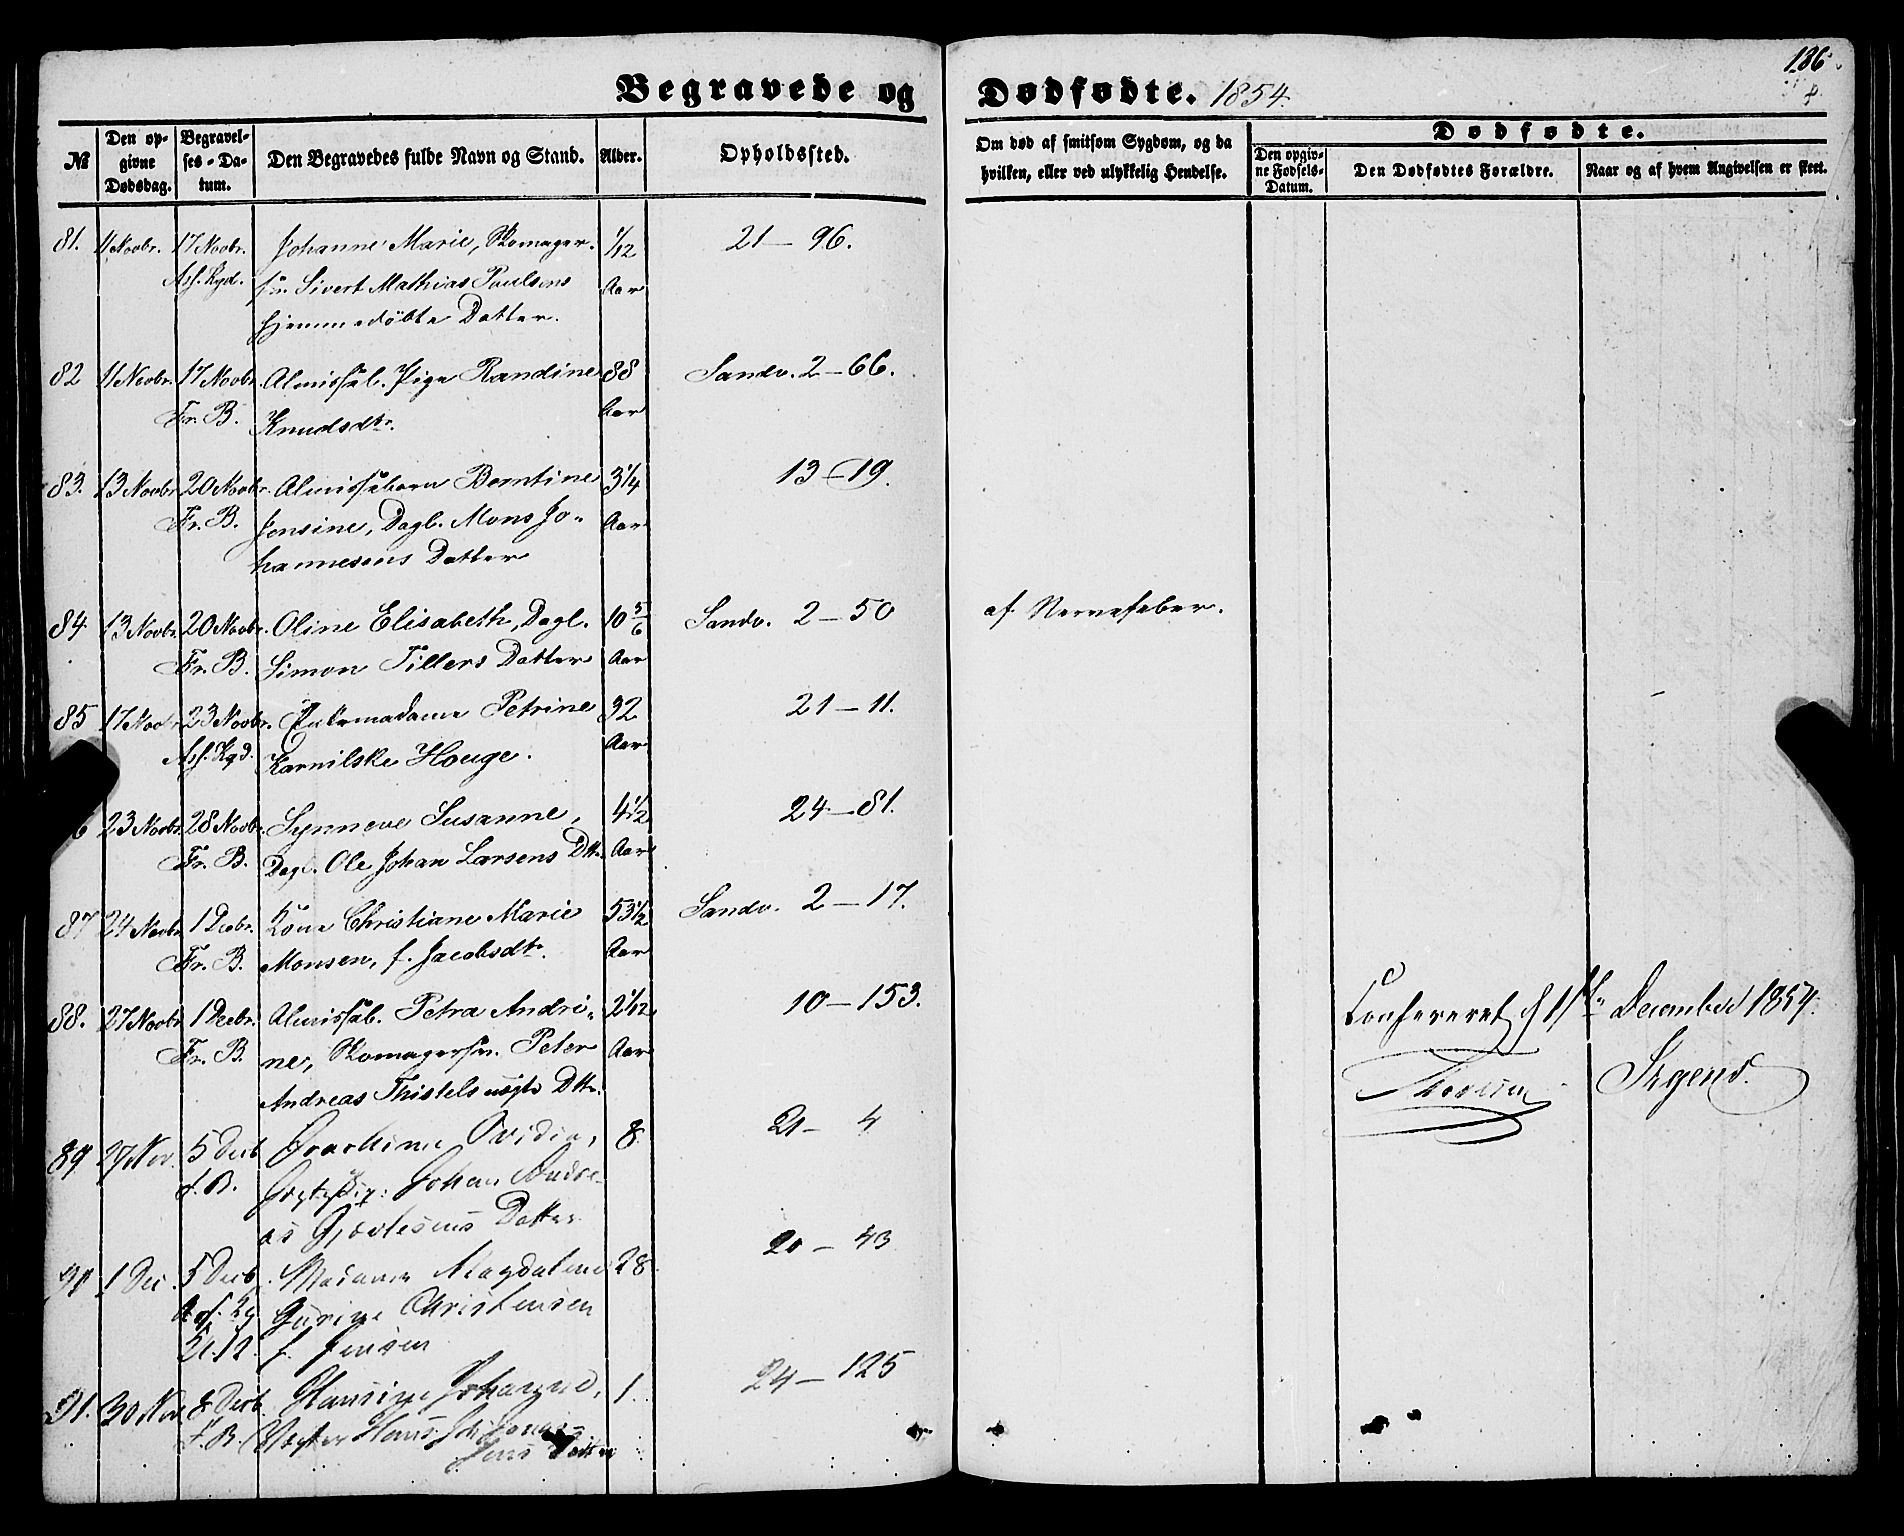 186
Begravede og Dødfødte. 1854.
№
Den opgivne Dødsdag.
Begravelses-Datum.
Den Begravedes fulde Navn og Stand.
Alder.
Opholdssted.
Om død af smitsom Sygdom, og da hvilken, eller ved ulykkelig Hendelse.
Dødfødte.
Den opgivne Fødsels-Datum.
Den Dødfødtes Forældre.
Naar og af hvem Angivelsen er skeet.
81. 11 Novbr. 17 Novbr. Johanne Marie, Skomager- 1/12 21 – 96.
Ass. Kgd. sv. Sivert Mathias Paulsens Aar
hjemmedøbte Datter.
82 11 Novbr. 17 Novbr. Almisselb. Pige Randine 88 Sandv. 2 – 66.
Fr. B. Knudsdtr. Aar
83. 13 Novbr. 20 Novbr. Almissebarn Berntine 3 1/4 13 – 19.
Fr. B. Jensine, Dagl. Mons Jo- Aar
hannesens Datter
84 13 Novbr. 20 Novbr. Oline Elisabeth, Dagl. 10 5/6 Sandv. 2 – 50 af Nervefeber.
Fr. B. Simon Tillers Datter Aar
85 17 Novbr. 23 Novbr. Enkemadame Petrine 32 21 – 11.
Ass. Kgd. Karnilske Houge. Aar
6 23 Novbr. 28 Novbr. Synneve Susanne, 4 1/2 24 – 81.
Fr. B. Dagl. Ole Johan Larsens Dttr. Aar
87 24 Novbr. 1 Decbr. Kone Christiane Marie 53 1/2 Sandv. 2 – 17.
Fr. B. Monsen, f. Jacobsdtr. Aar
88. 27 Novbr. 1 Decbr. Almisselb. Petra Andri- 2 1/12 10 – 153.
Fr. B. ne, Skomagersv. Peter Aar
Andreas Thistels uægte Dttr.
Confereret d 1ste December 1854.
Irgens.
89 27 Nov. 5 Decb Ovidia, 8. 21 – 4
f. B. Johan Andre-
as Datter
90 1 Dec. 5 Decb. Madame Magdalene 28 20 – 43
Ass. Kg Gurine Christensen
f. Jensen
91. 30 Nov 8 Decb. Hansine Johanne, 1. 24 – 125
F. B. Hans
Datter